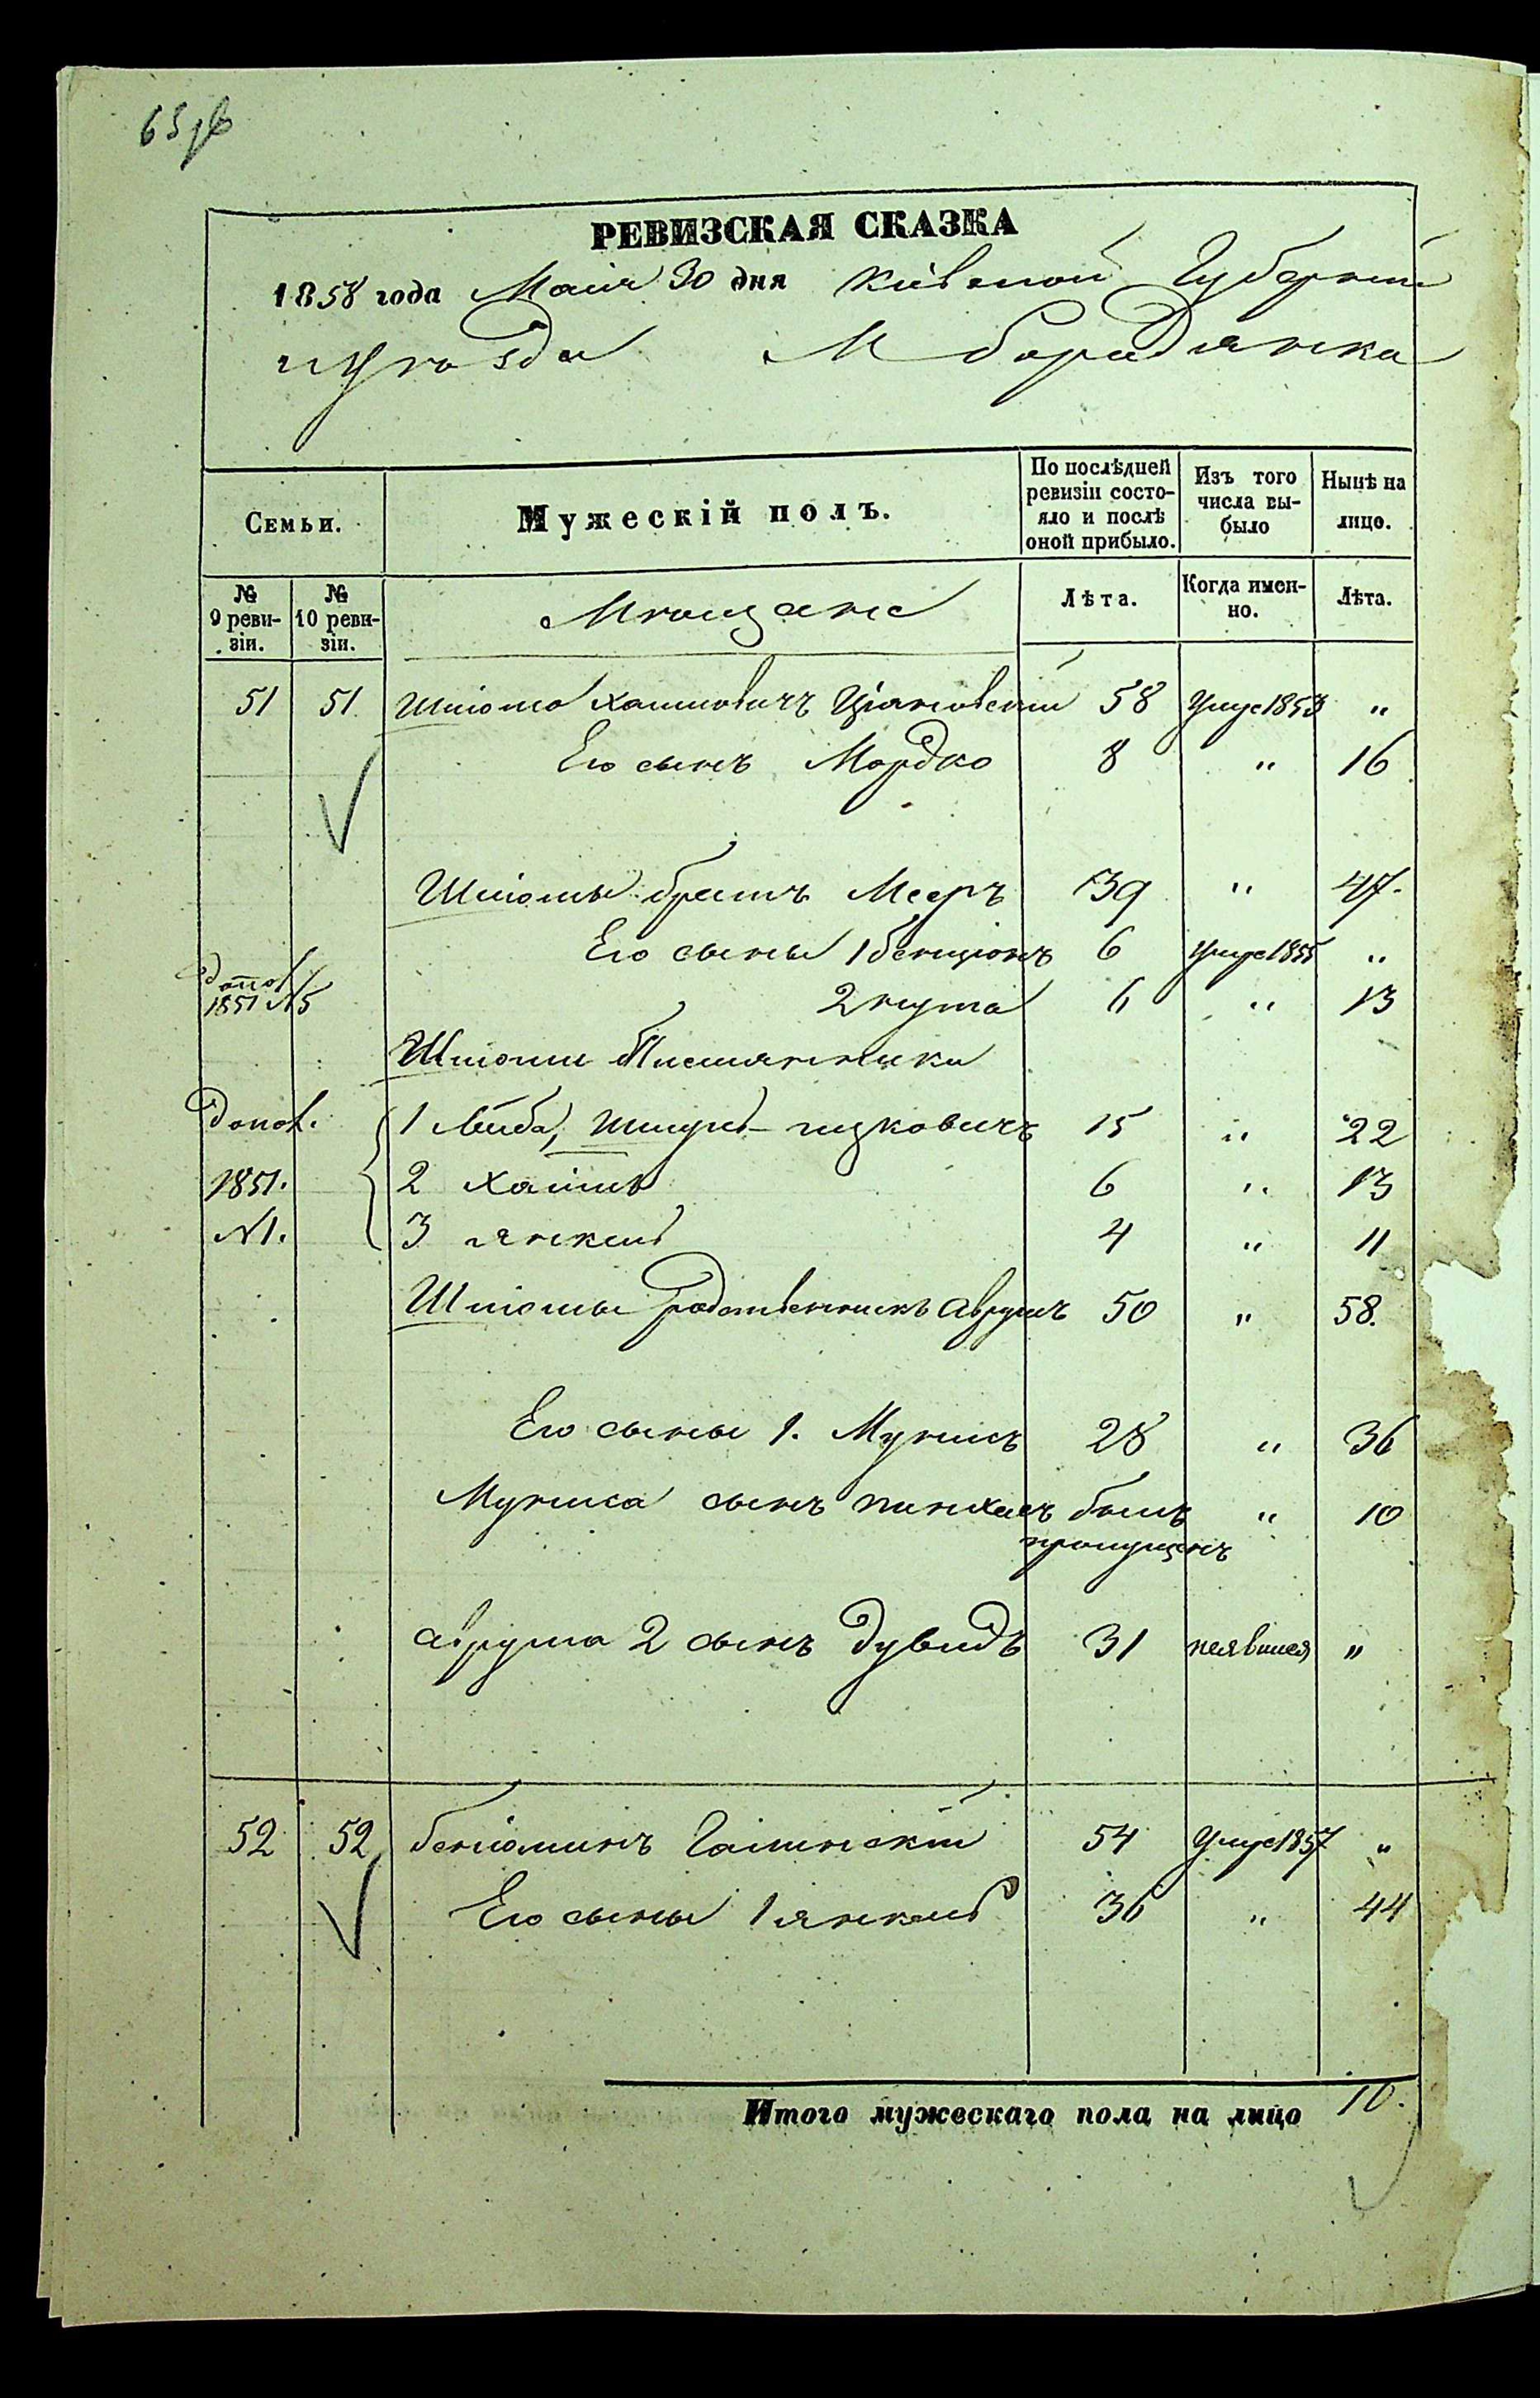 65 об
РЕВИЗСКАЯ СКАЗКА
1858 года Маія 30 дня Кіевской Губерніи
и уѣзда М Бородянка
Семьи.
Мужескій полъ.
По послѣдней ревизіи состо-
яло и послѣ
оной прибыло.
Изъ того
числа вы-
было
Нынѣ на
лицо.
№
9 реви-
зіи.
№
10 реви-
зіи.
Мѣщане
Лѣта.
Когда имен-
но.
Лѣта.
51 51 Шлiома Хаимовичъ 58 Умре 1853 "
Его сынъ Мордко 8 " 16
Шлiомы братъ Мееръ 39 " 47.
Его сыны 1 Бенціонъ 6 Умре 1855 "
допол
1851 №5
2 нута 6 " 13
Шлiомы Племянники
Допол. 1 Лейба, Ицковичъ 15 " 22
1851. 2 Хаимъ 6 " 13
№1. 3 янкель 4 " 11
Шлiомы родственникъ аврумъ 50 " 58.
Его сыны 1. Мунисъ 28 " 36
Муниса сынъ пинхасъ былъ " 10
пропущенъ
аврума 2 сынъ Дувидъ 31 неявился "
52 52 беніоминъ 54 Умре 1857 "
Его сыны 1 янкель 36 " 44
Итого мужескаго пола на лицо 10.